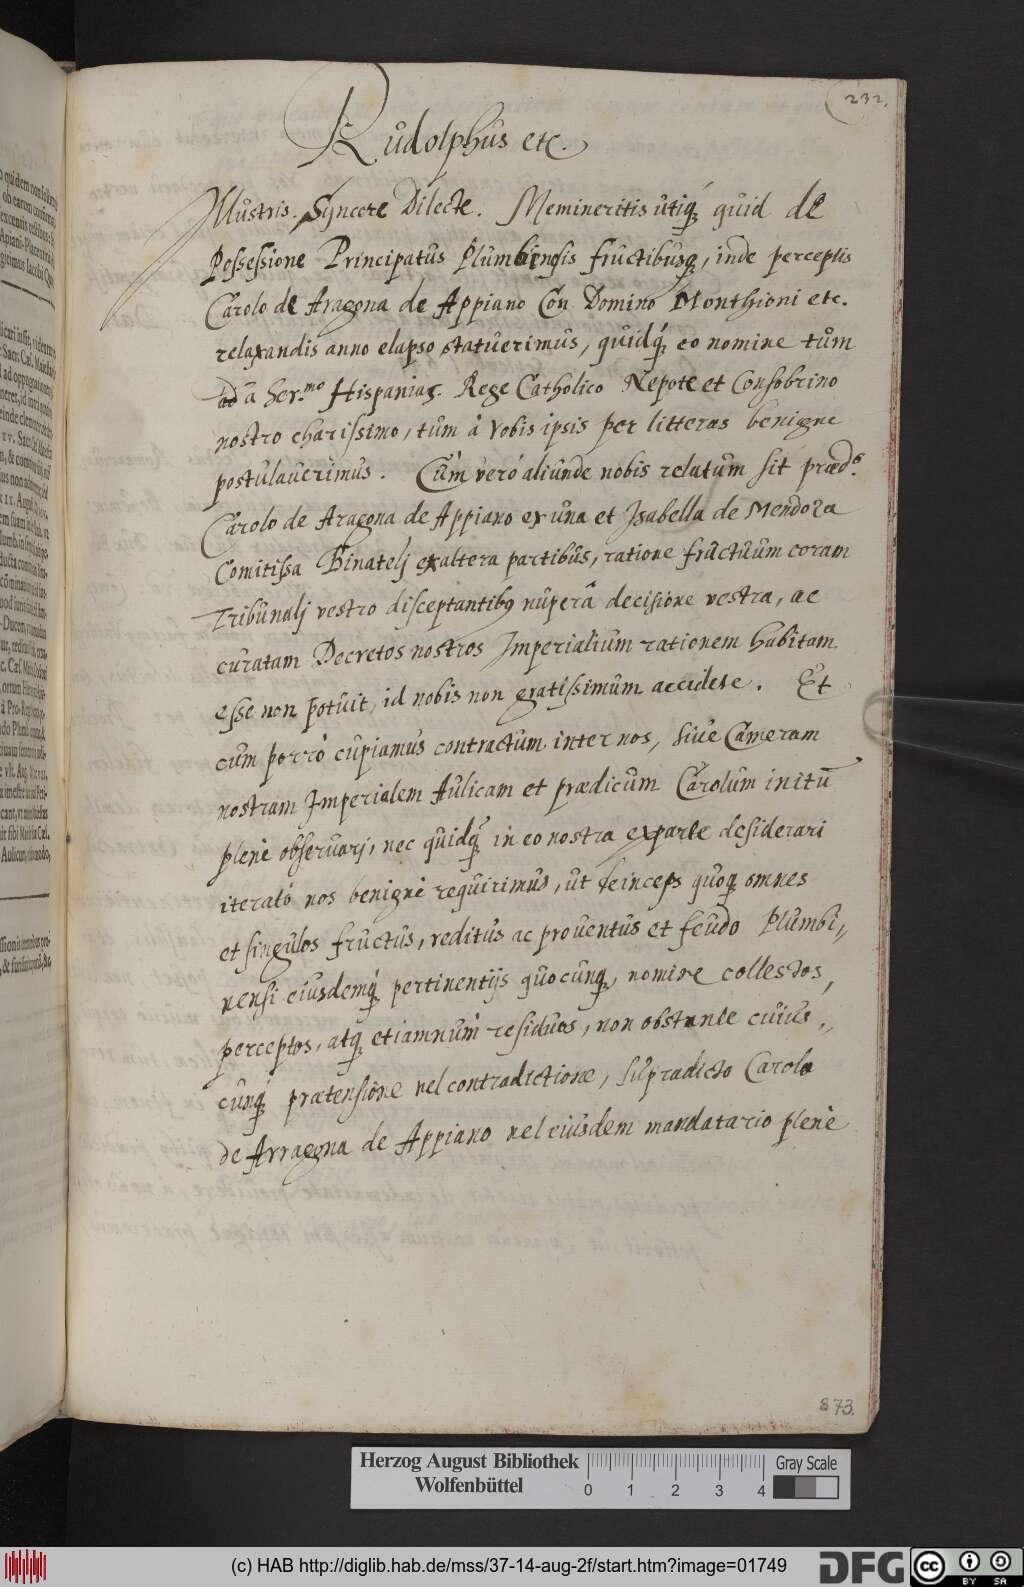 232.
Rudolphus etc.
Illustris. Syncere Dilecte. Memineritis utiq́ue quid de
Possessione Principatus Plumbinesis fructibusq, inde perceptis
Carolo de Aragona de Appiano Con Domino Monthioni etc.
relaxandis anno elapso statuerimus, quidq́ eo nomine tum
ad à Ser.mo Hispaniaȩ. Rege Catholico Nepote et Consobrino
nostro charissimo, tum à Vobis ipsis per litteras benigne
postulaverimus. Cùm verò aliunde nobis relatum sit præd.o
Carolo de Aragona de Appiano ex una et Isabella de Mendoza
Comitissa Binatelj ex altera partibus, ratione fructuum coram
Tribunalj vestro disceptantibus nuperâ decisione vestra, ac
curatam Decretos nostros Imperialium rationem habitam
esse non potuit, id nobis non gratissimum accidere. Et
cum porrò cupiamus contractum inter nos, sive Cameram
nostram Imperialem Aulicam et prædicum Carolum initū
plenè observarj, nec quidq́ in eo nostra ex parte desiderari
iteratò nos benignè requirimus, ut deinceps quoq omnes
et singulos fructus, reditus ac proventus et feudo Plumbi,,
nensi eiusdemq́ pertinentijs quocunq, nomine collectos,
perceptos, atq etiamnùm residuos, non obstante cuius,,
cunq́ prætensione vel contradictione, supradicto Carolo
de Arragona de Appiano vel eiusdem mandatario plenè
873.
Herzog August Bibliothek
Wolfenbüttel
0 1 2 3 4
Gray Scale
(c) HAB http://diglib.hab.de/mss/37-14-aug-2f/start.htm?image=01749
DFG
cc BY SA